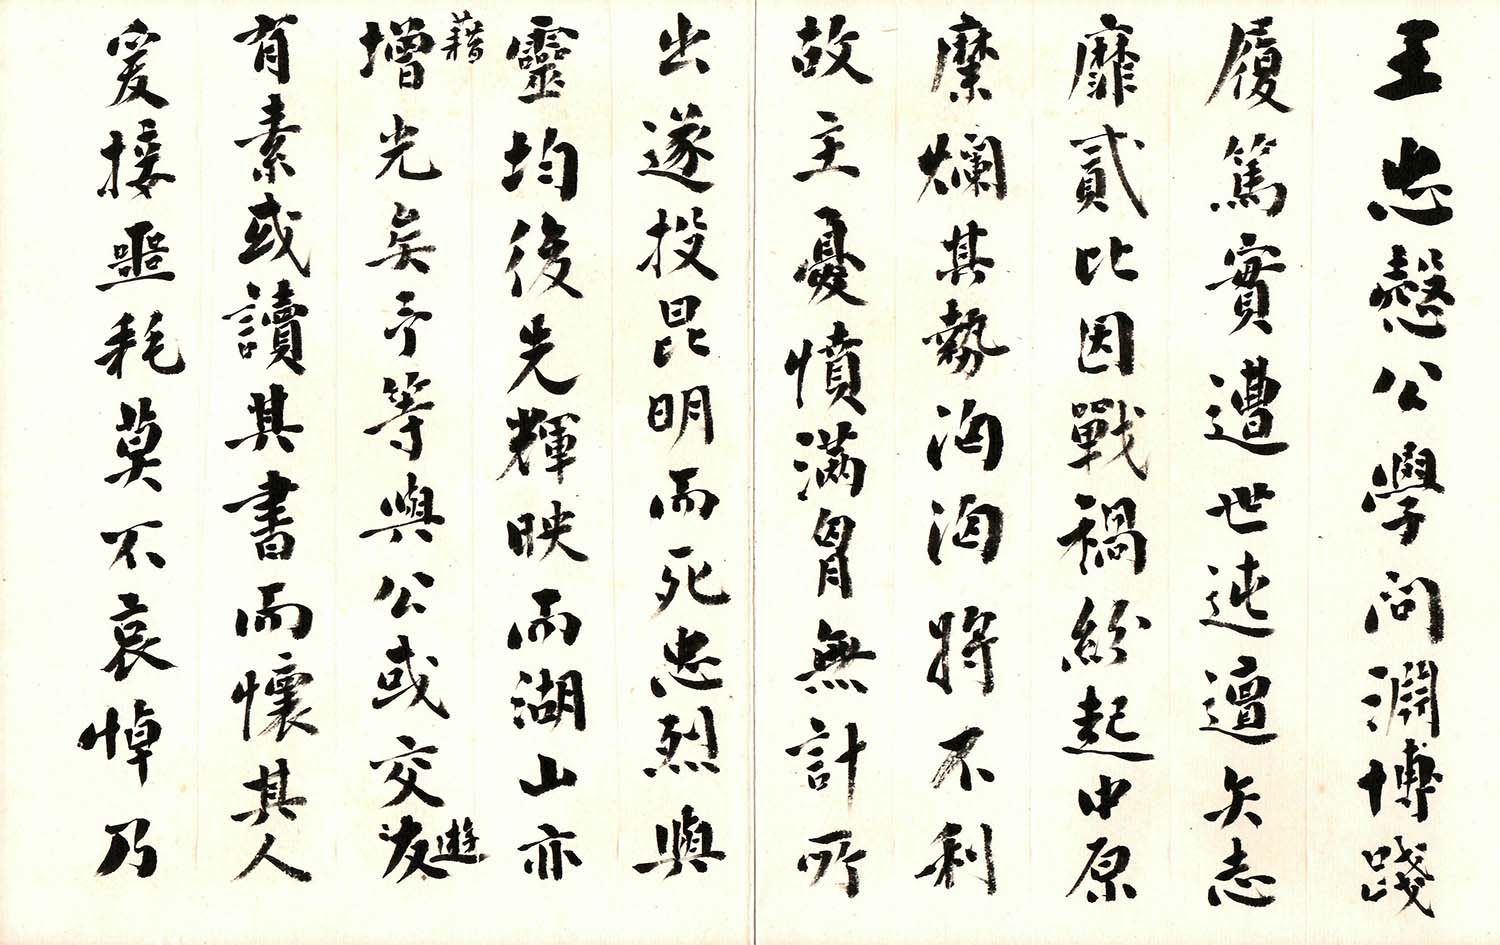 王忠慤公學問淵博踐
履篤實遭世迍邅矢志
靡貳比因戰禍紛起中原
糜爛其勢洶洶將不利
故主憂憤滿胷無計所
出遂投昆明而死忠烈與
靈均後先輝映而湖山亦
藉增光矣予等與公或交友遊
有素或讀其書而懷其人
爰接噩耗莫不哀悼乃